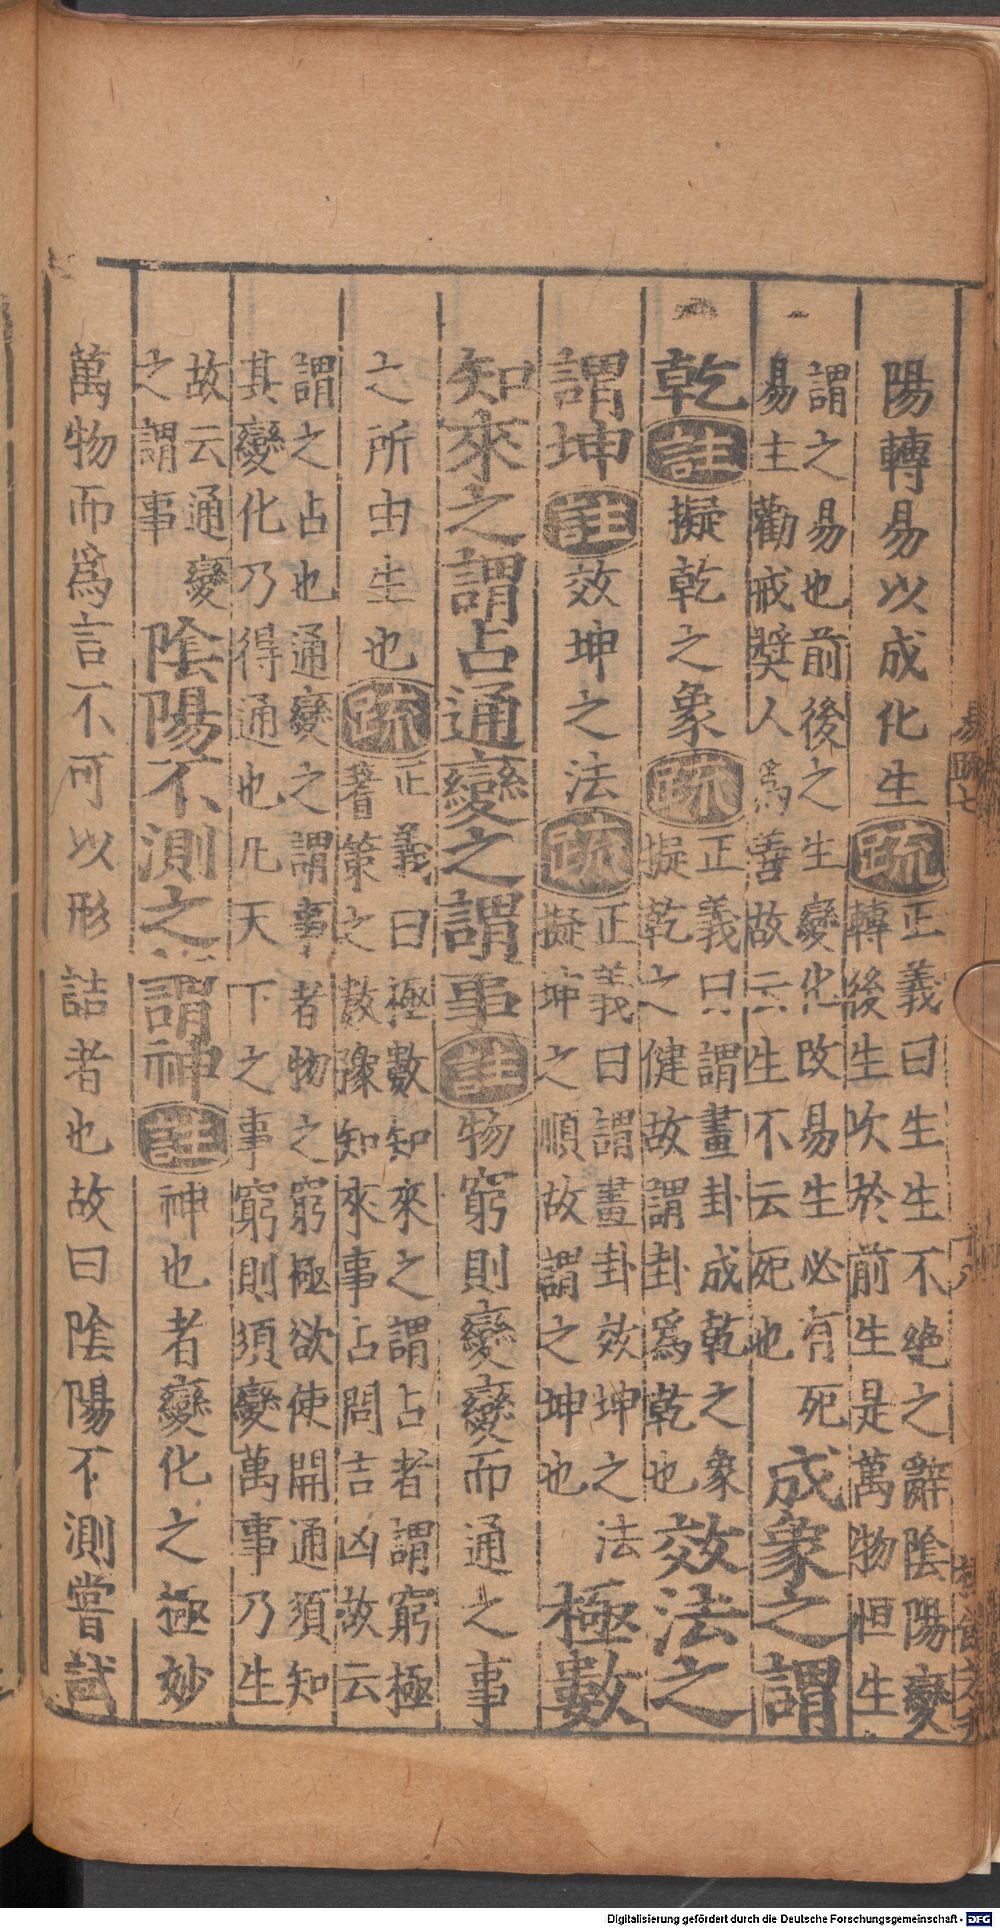 陽轉易以成化生疏正義曰生生不絶之辭陰陽變
轉後生次於前生是萬物恒生
謂之易也前後之生變化改易生必有死
易主勸戒奬人爲善故云生不云死也成象之謂
乾註擬乾之象疏正義曰謂畫卦成乾之象
擬乾之健故謂卦爲乾也效法之
謂坤註效坤之法疏正義曰謂畫卦效坤之法
擬坤之順故謂之坤也極數
知來之謂占通變之謂事註物窮則變變而通之事
之所由生也疏正義曰極數知來之謂占者謂窮極
蓍策之數豫知來事占問吉凶故云
謂之占也通變之謂事者物之窮極欲使開通須知
其變化乃得通也凡天下之事窮則須變萬事乃生
故云通變
之謂事陰陽不測之謂神註神也者變化之極妙
萬物而爲言不可以形詰者也故曰陰陽不測嘗試
易疏七
Digitalisierung gefördert durch die Deutsche Forschungsgemeinschaft - DFG